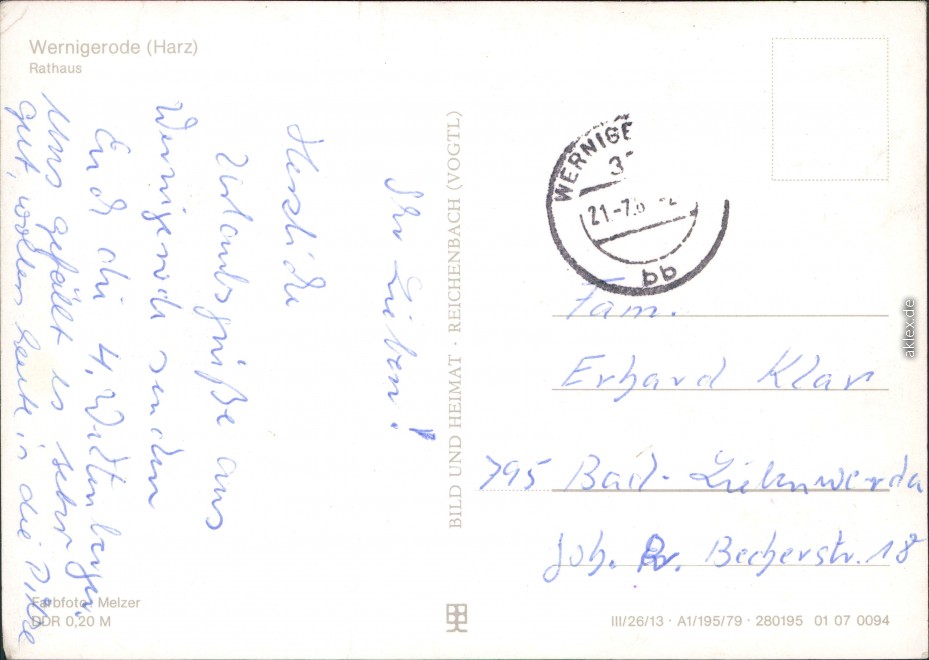 Wernigerode (Harz)
Rathaus
Ihr Lieben!
Herzliche
Urlaubsgrüße aus
Wernigerode senden
Euch die 4, Wittenberger.
Uns gefällt es sehr
gut, wollen heute in die Pilze
Farbfoto: Melzer
DDR 0,20 M
BILD UND HEIMAT · REICHENBACH (VOGTL)
WERNIGE
3
21.-7.
bb
Fam.
Erhard Klar
795 Bad-Liebenwerda
Joh. R. Becherstr. 18
III/26/13 · A1/195/79 · 280195 01 07 0094
aklex.de